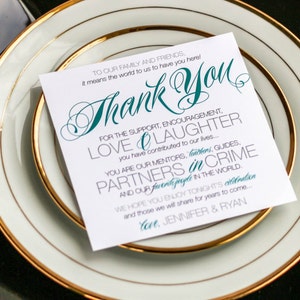 TO OUR FAMILY AND FRIENDS,
it means the world to us to have you here!
Thank You
FOR THE SUPPORT, ENCOURAGEMENT,
LOVE & LAUGHTER
you have contributed to our lives...
YOU ARE OUR MENTORS, teachers, GUIDES,
PARTNERS IN CRIME
AND OUR favorite people IN THE WORLD.
WE HOPE YOU ENJOY TONIGHT'S celebration
and those we will share for years to come...
Love, JENNIFER & RYAN